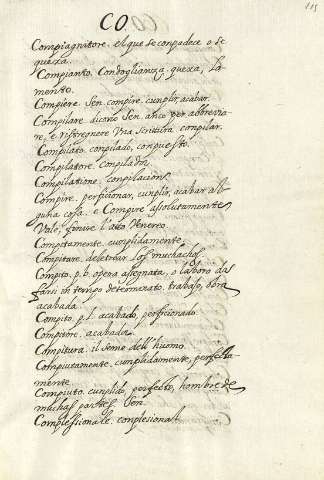 115
CO.
Compiagnitore. el que se conpadece o se
quexa.
Compianto. Condoglianza, quexa, la
mento.
Compiere. Sen. compire, cunplir, acabar.
Compilare dicono Sen. anco per abbrevia
re, e ristregnere Una Scrittura conpilar.
Compilato. conpilado, conpuesto.
Compilatore. conpilador.
Compilatione. conpilacion.
Compire. perficionar, cunplir, acabar al
guna cosa. e Compire assolutamente
Vale, finire l'atto Venereo.
Compitamente. cunplidamente.
Compitare. deletrear los muchachos.
Compito. p. b. opera assegnata, o laboro da
farsi in tempo determinato. trabajo, obra
acabada.
Compito. p. l. acabado, perficionado.
Compitore. acabador.
Compitura. il seme dell'huomo.
Compiutamente. cumplidamente, perfetta
mente.
Compiuto. cunplido, perfecto, hombre de
muchas partes. Sen.
Complessionale. conplesional.